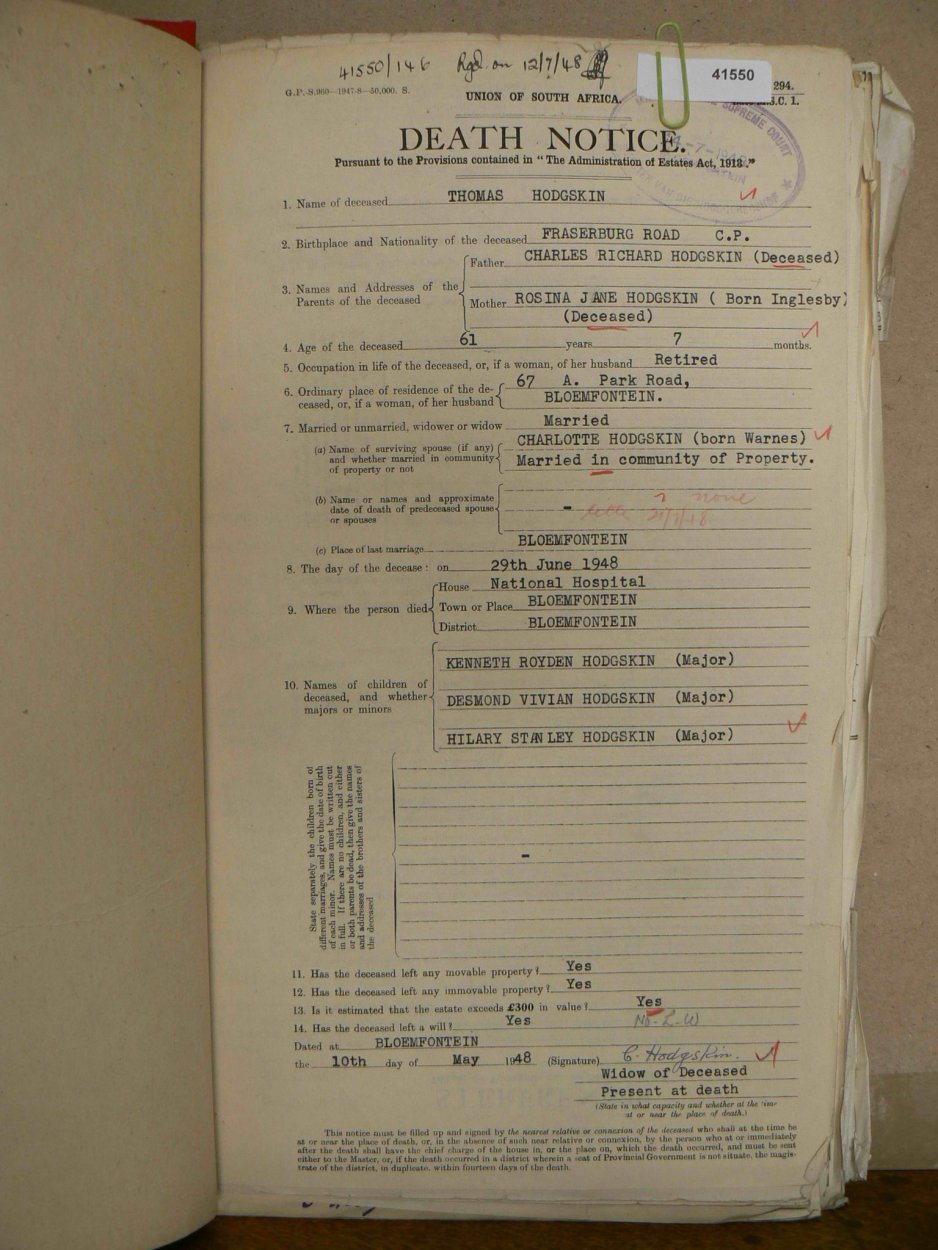 41550/146 Rgd. on 12/7/48
41550
G.P.-S.960—1947-8—50,000. S.
294.
UNION OF SOUTH AFRICA.
M.S.C. 1.
SUPREME COURT
DEATH NOTICE.
Pursuant to the Provisions contained in “The Administration of Estates Act, 1913.”
1. Name of deceased THOMAS HODGSKIN
2. Birthplace and Nationality of the deceased FRASERBURG ROAD C.P.
3. Names and Addresses of the Parents of the deceased
Father CHARLES RICHARD HODGSKIN (Deceased)
Mother ROSINA JANE HODGSKIN ( Born Inglesby)
(Deceased)
4. Age of the deceased 61 years 7 months.
5. Occupation in life of the deceased, or, if a woman, of her husband Retired
6. Ordinary place of residence of the de-
ceased, or, if a woman, of her husband
67 A. Park Road,
BLOEMFONTEIN.
7. Married or unmarried, widower or widow Married
(a) Name of surviving spouse (if any)
and whether married in community
of property or not
CHARLOTTE HODGSKIN (born Warnes)
Married in community of Property.
(b) Name or names and approximate
date of death of predeceased spouse
or spouses
-
? none
(c) Place of last marriage BLOEMFONTEIN
8. The day of the decease: on 29th June 1948
9. Where the person died
House National Hospital
Town or Place BLOEMFONTEIN
District BLOEMFONTEIN
10. Names of children of
deceased, and whether
majors or minors
KENNETH ROYDEN HODGSKIN (Major)
DESMOND VIVIAN HODGSKIN (Major)
HILARY STANLEY HODGSKIN (Major)
State separately the children born of
different marriages, and give the date of birth
of each minor. Names must be written out
in full. If there are no children, and either
or both parents be dead, then give the names
and addresses of the brothers and sisters of
the deceased
-
11. Has the deceased left any movable property? Yes
12. Has the deceased left any immovable property? Yes
13. Is it estimated that the estate exceeds £300 in value? Yes
14. Has the deceased left a will? Yes
Dated at BLOEMFONTEIN
the 10th day of May 1948 (Signature) C. Hodgskin.
Widow of Deceased
Present at death
(State in what capacity and whether at the time
at or near the place of death.)
This notice must be filled up and signed by the nearest relative or connexion of the deceased who shall at the time be
at or near the place of death, or, in the absence of such near relative or connexion, by the person who at or immediately
after the death shall have the chief charge of the house in, or the place on, which the death occurred, and must be sent
either to the Master, or, if the death occurred in a district wherein a seat of Provincial Government is not situate, the magis-
trate of the district, in duplicate, within fourteen days of the death.